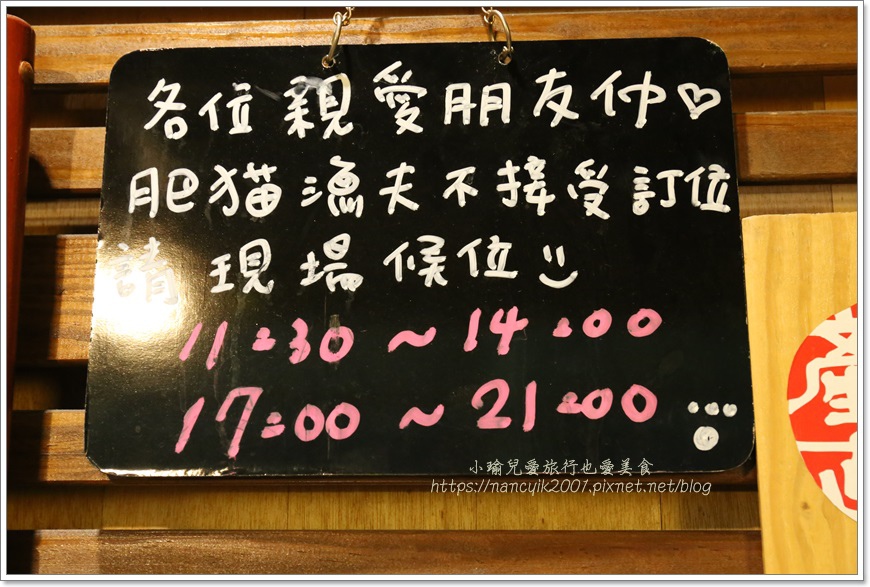 各位親愛朋友们♡
肥猫漁夫不接受訂位
請現場候位
11:30 ~ 14:00
17:00 ~ 21:00
小瑜兒愛旅行也愛美食
https://nancyik2001.pixnet.net/blog